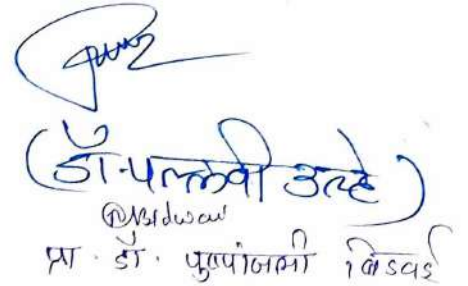 (डॉ. पल्लवी उल्हे)
प्रा. डॉ. पुष्पांजली बिडवई